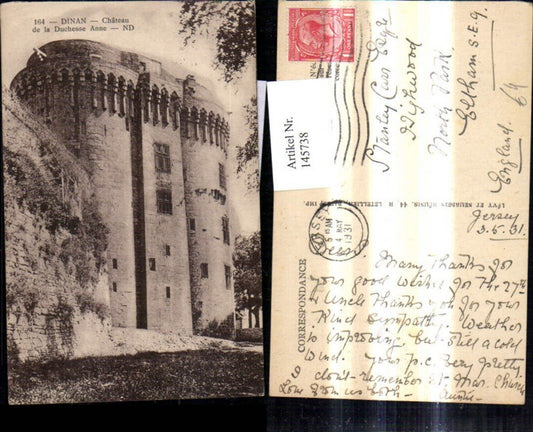 164 — DINAN — Château
de la Duchesse Anne — ND
Artikel Nr.
145738
Stanley Carr Esqr
Highwood
North Park
Eltham S.E.9.
England.
64
LÉVY ET NEURDEIN RÉUNIS, 44, R. LETELLIER, PARIS, IMP.
5 15 AM
4 MAY
1931
CORRESPONDANCE
Jersey
3.5.31.
Many thanks for
your good wishes for the 27th
Uncle thanks you for your
kind sympathy. Weather
is improving but still a cold
wind. Your p.c. very pretty
don't remember St. Mar. Church
Love from us both — Auntie —